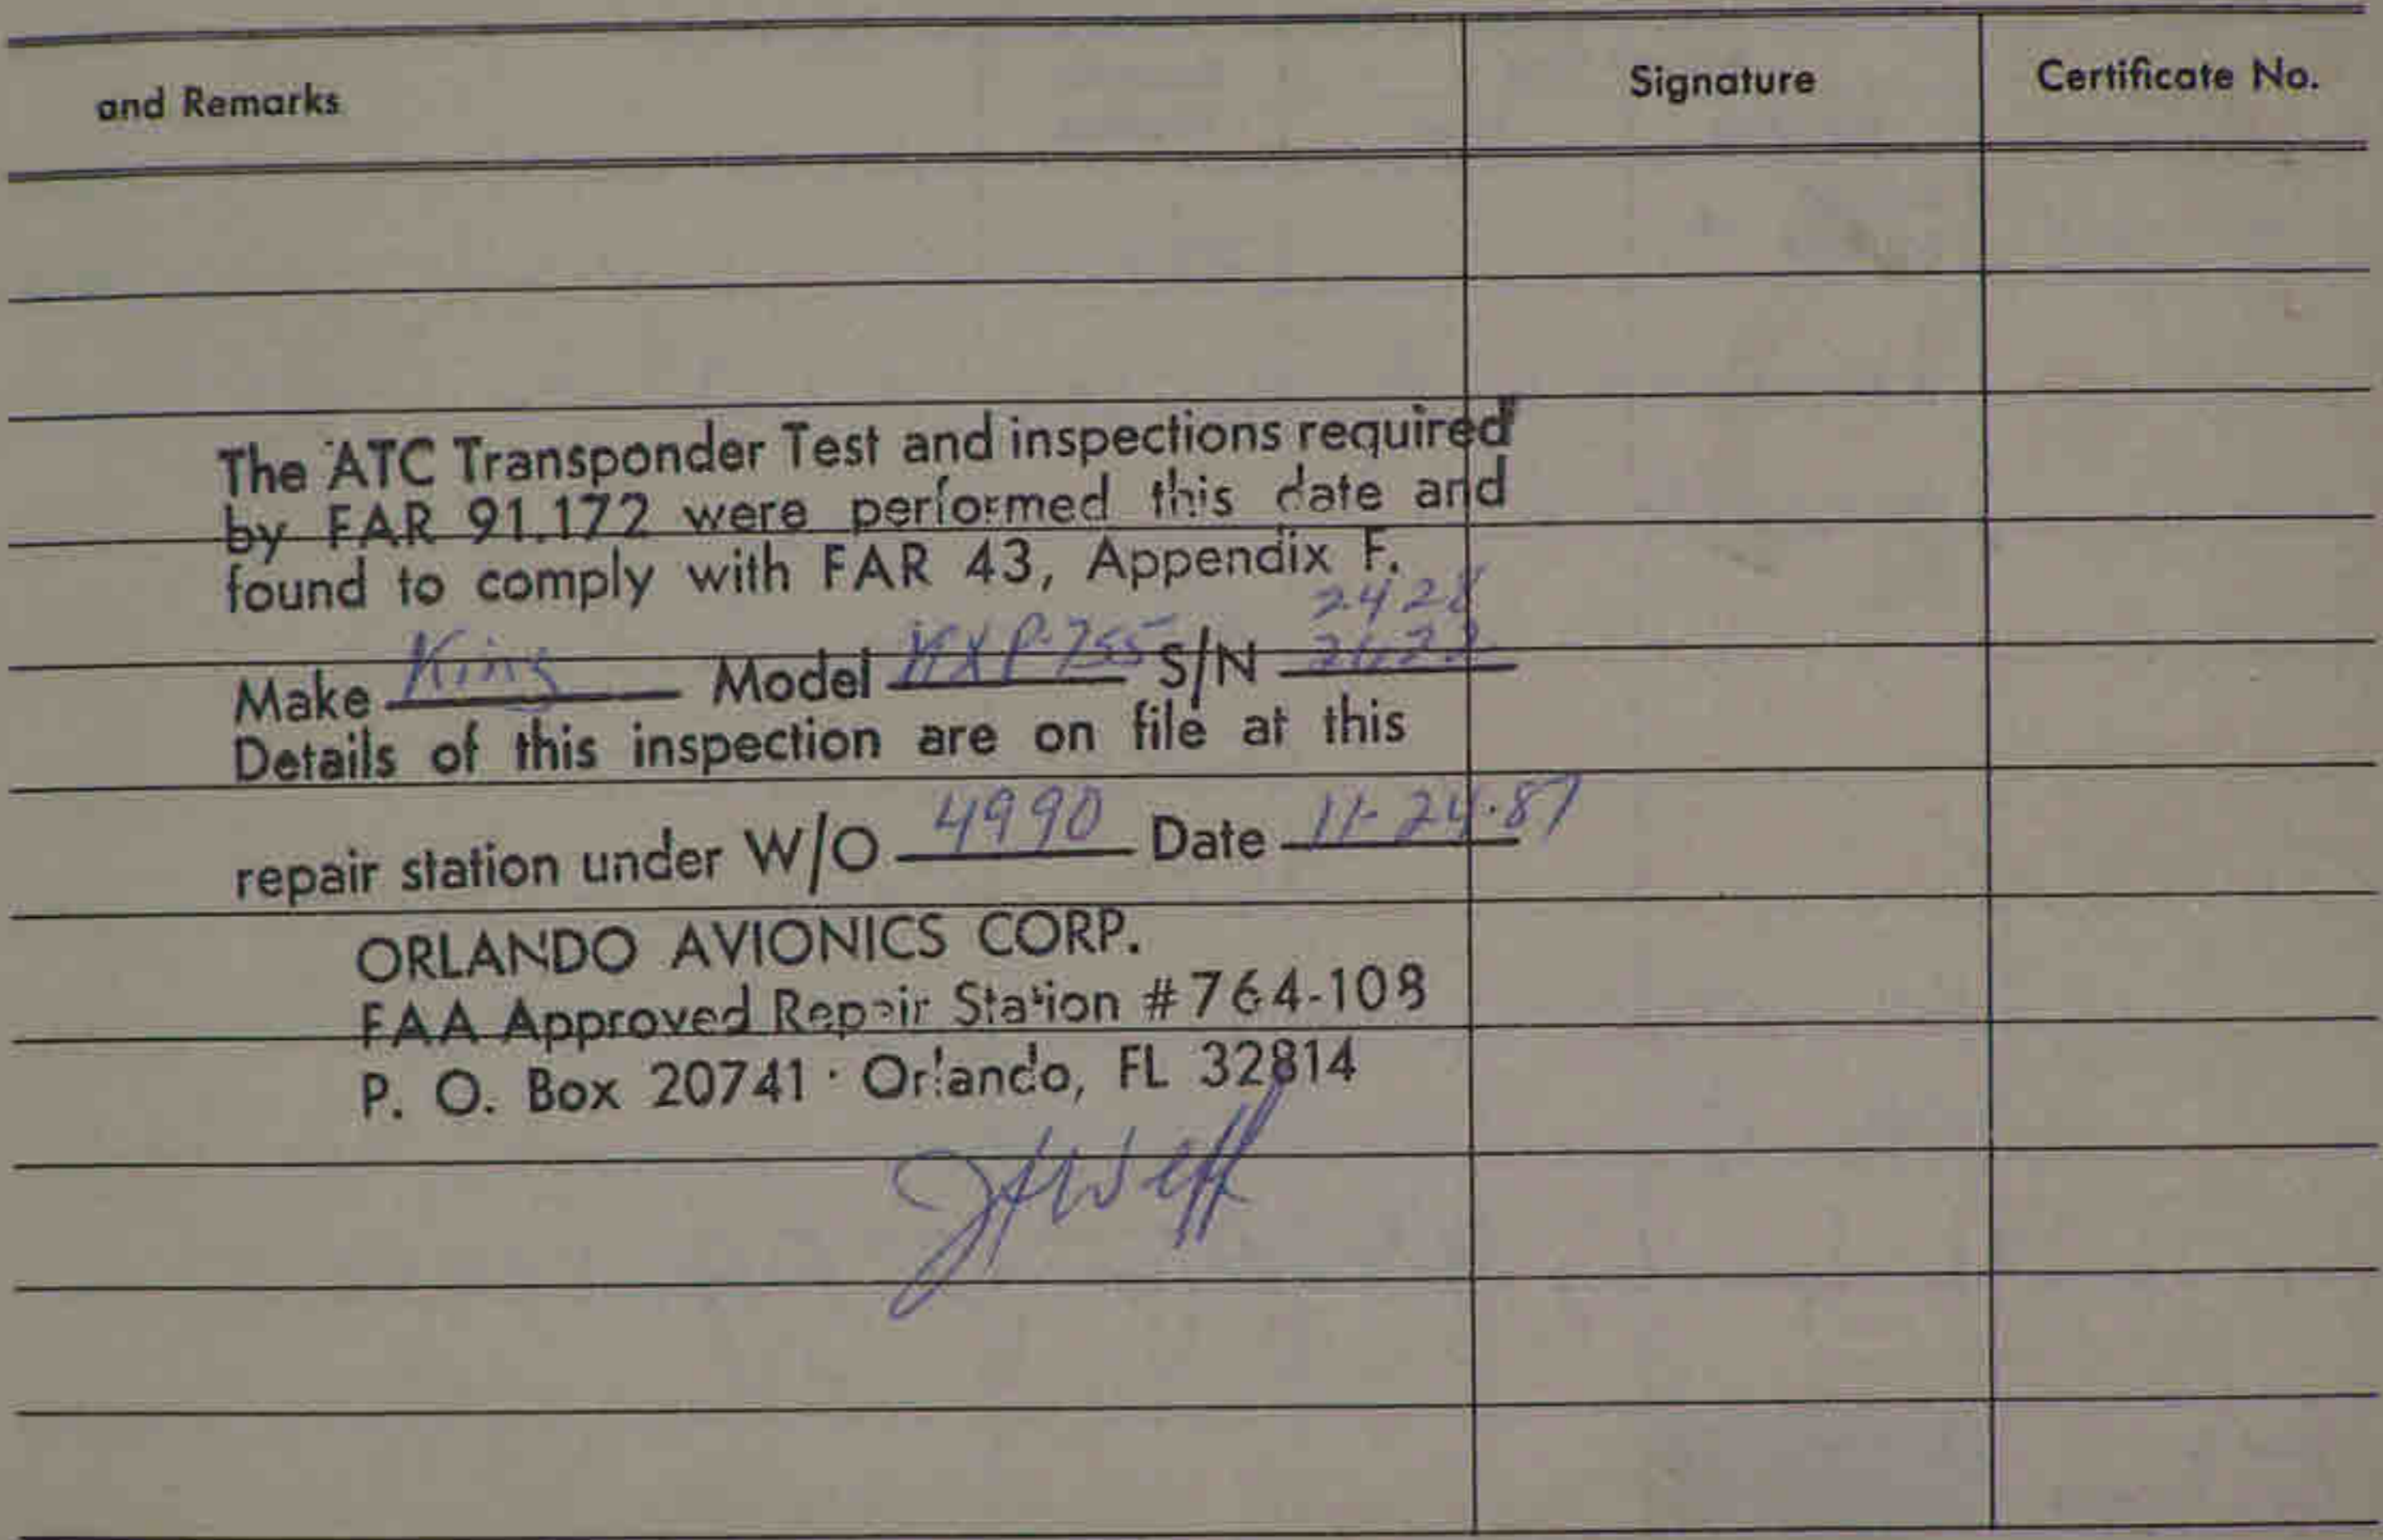 and Remarks Signature Certificate No.
The ATC Transponder Test and inspections required
by FAR 91.172 were performed this date and
found to comply with FAR 43, Appendix F.
2428
Make King Model KXP-755 S/N
Details of this inspection are on file at this
repair station under W/O 4990 Date 11-24-87
ORLANDO AVIONICS CORP.
FAA Approved Repair Station #764-108
P. O. Box 20741 · Orlando, FL 32814